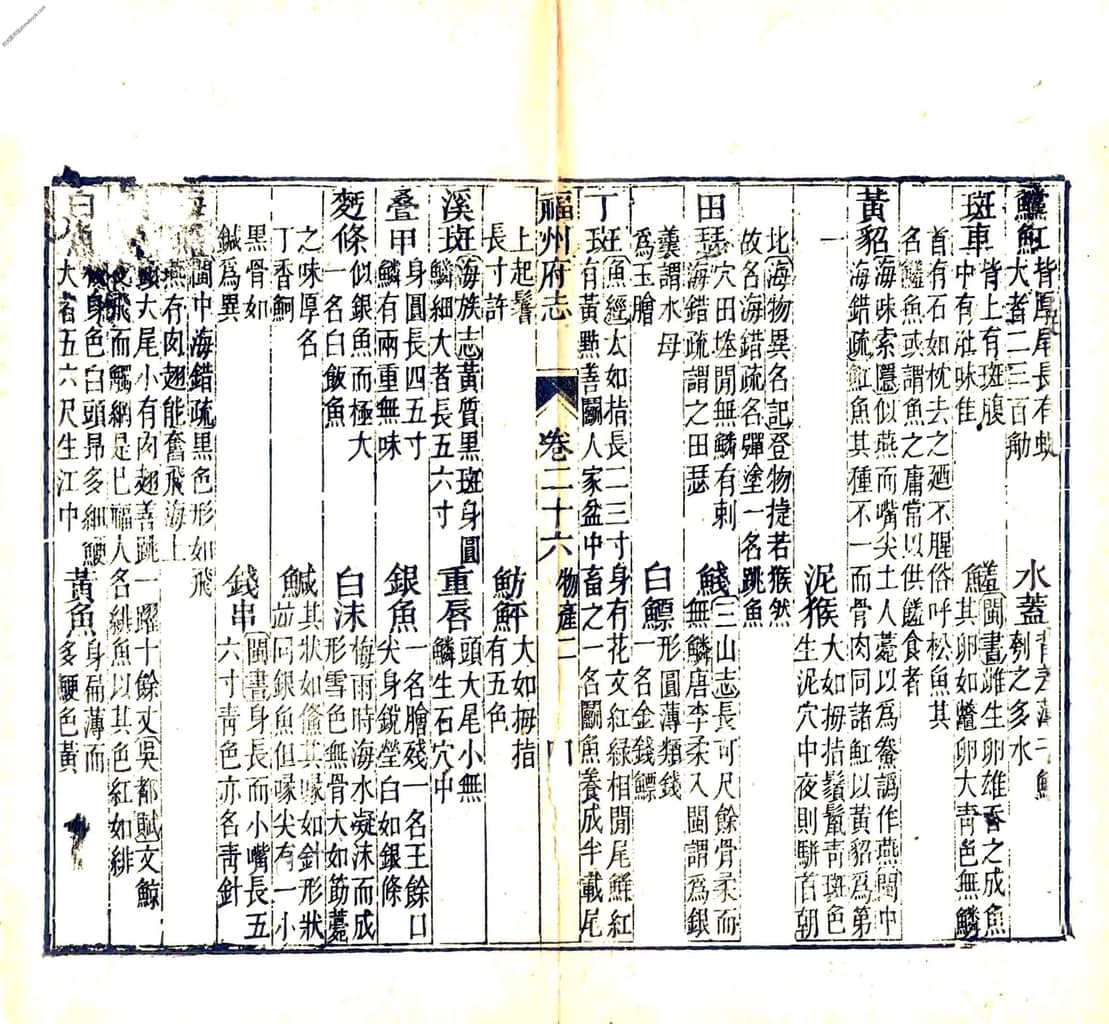 魟 背厚尾長有
大者二三百觔
水蓋 背
刳之多水
斑車 背上有斑腹
中有肚味佳
閩書雌生卵雄吞之成魚
其卵如鼈卵大青色無鱗
首有石如枕去之廼不腥俗呼松魚其
名鱃魚或謂魚之庸常以供饈食者
黃貂 海味索隱似燕而嘴尖土人薨以為鮝譌作燕閩中
海錯疏魟魚其種不一而骨肉同諸魟以黃貂為第
一
泥猴 大如拇指鬚鬣青斑色
生泥穴中夜則駢首朝
北海物異名記登物捷若猴然
故名海錯疏名彈塗一名跳魚
田瑟 穴田塍閒無鱗有刺
海錯疏謂之田瑟
䱠 三山志長可尺餘骨柔而
無鱗唐李柔入閩謂為銀
羹謂水母
為玉膾
白鰾 形圓薄類錢
一名金錢鰾
丁斑 魚經大如指長二三寸身有花文紅綠相閒尾鮮紅
有黃點善鬭人家盆中畜之一名鬭魚養成半載尾
福州府志 卷二十六 物產二 四
上起鬐
長寸許
魴鮃 大如拇指
有五色
溪斑 海族志黃質黑斑身圓
鱗細大者長五六寸
重唇 頭大尾小無
鱗生石穴中
疊甲 身圓長四五寸
鱗有兩重無味
銀魚 一名膾殘一名王餘口
尖身銳瑩白如銀條
麫條 似銀魚而極大
一名白飯魚
白沫 梅雨時海水凝沫而成
形雪色無骨大如筯薨
之味厚名
丁香鮰
鰔 其狀如其喙如針形狀
竝同銀魚但喙尖有一小
黑骨如
鍼為異
錢串 閩書身長而小嘴長五
六寸青色亦名青針
海 閩中海錯疏黑色形如飛
燕有肉翅能奮飛海上
頭大尾小有肉翅善跳一躍十餘丈吳都賦文鰩
夜飛而觸網是已福人名緋魚以其色紅如緋
白魚 身色白頭昂多細鯁
大者五六尺生江中
黃魚 身扁薄而
多鯁色黃